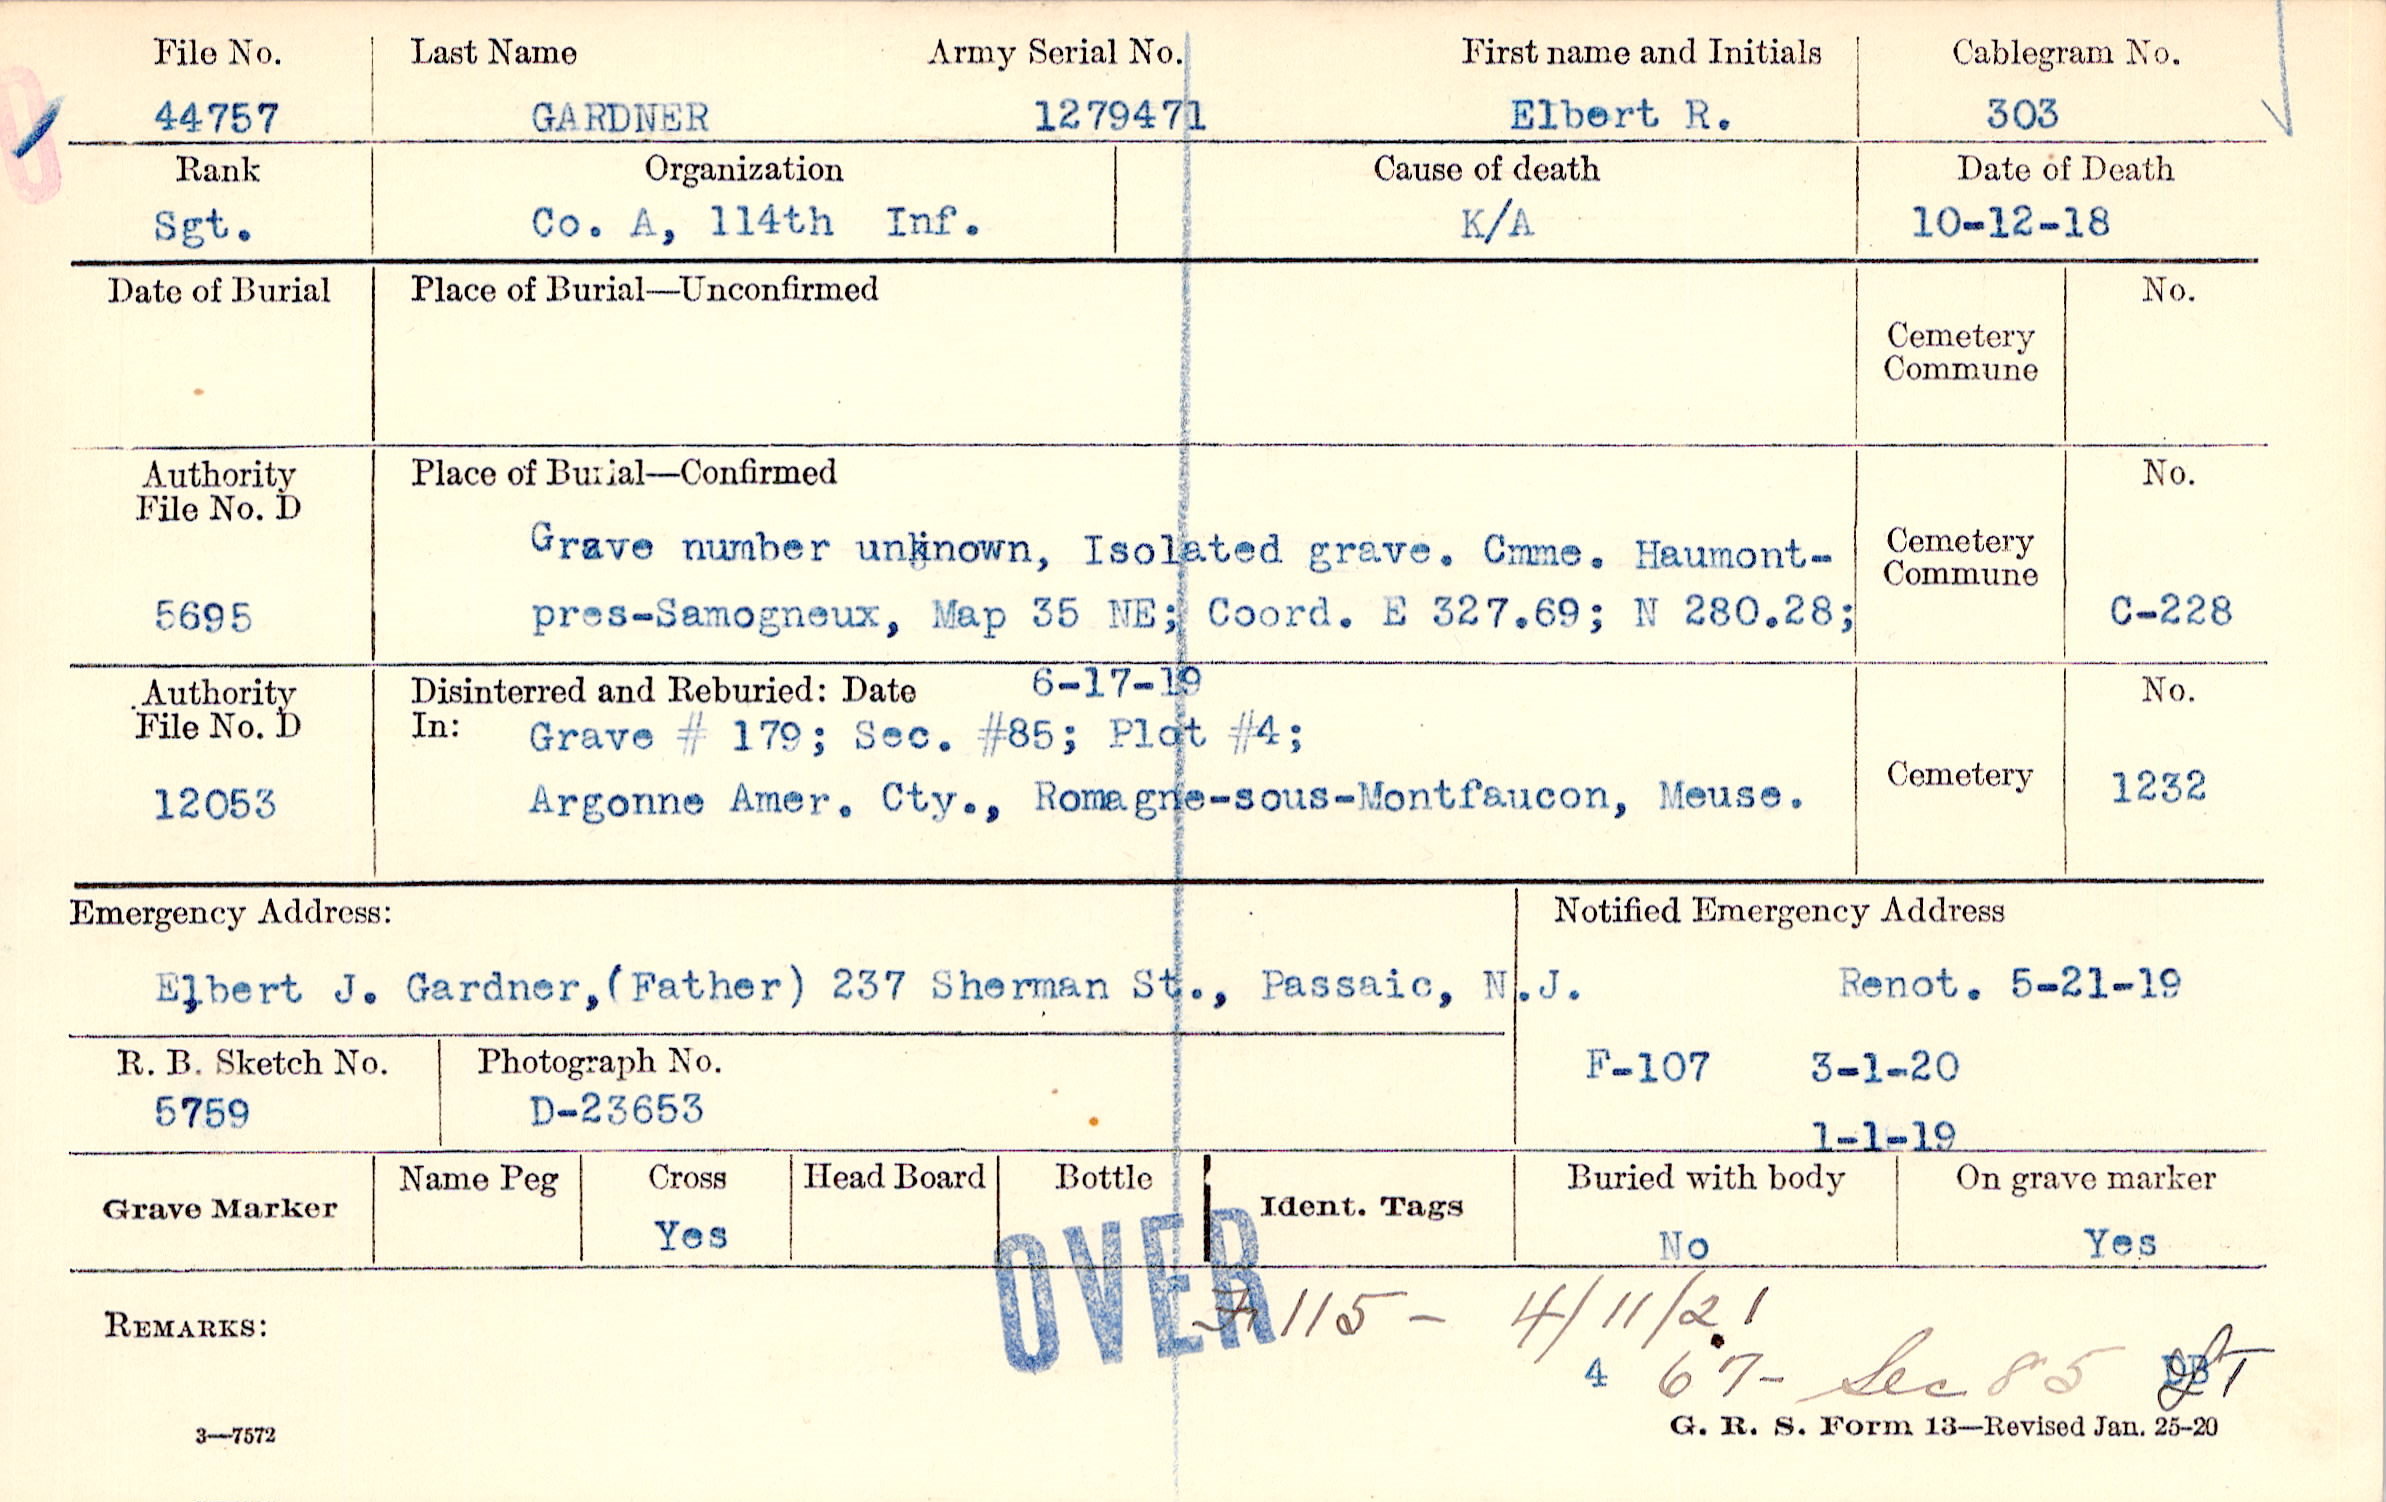 File No. Last Name Army Serial No. First name and Initials Cablegram No.
44757 GARDNER 1279471 Elbert R. 303
Rank Organization Cause of death Date of Death
Sgt. Co. A, 114th Inf. K/A 10-12-18
Date of Burial Place of Burial—Unconfirmed No.
Cemetery
Commune
Authority Place of Burial—Confirmed No.
File No. D
Grave number unknown, Isolated grave. Cmme. Haumont- Cemetery
Commune
5695 pres-Samogneux, Map 35 NE; Coord. E 327.69; N 280.28; C-228
Authority Disinterred and Reburied: Date 6-17-19 No.
File No. D In: Grave # 179; Sec. #85; Plot #4;
Cemetery
12053 Argonne Amer. Cty., Romagne-sous-Montfaucon, Meuse. 1232
Emergency Address: Notified Emergency Address
Elbert J. Gardner,(Father) 237 Sherman St., Passaic, N.J. Renot. 5-21-19
R. B. Sketch No. Photograph No. F-107 3-1-20
5759 D-23653
1-1-19
Grave Marker Name Peg Cross Head Board Bottle Ident. Tags Buried with body On grave marker
Yes No Yes
OVER
115 - 4/11/21
REMARKS:
4 67- Sec 85
3—7572 G. R. S. Form 13—Revised Jan. 25-20